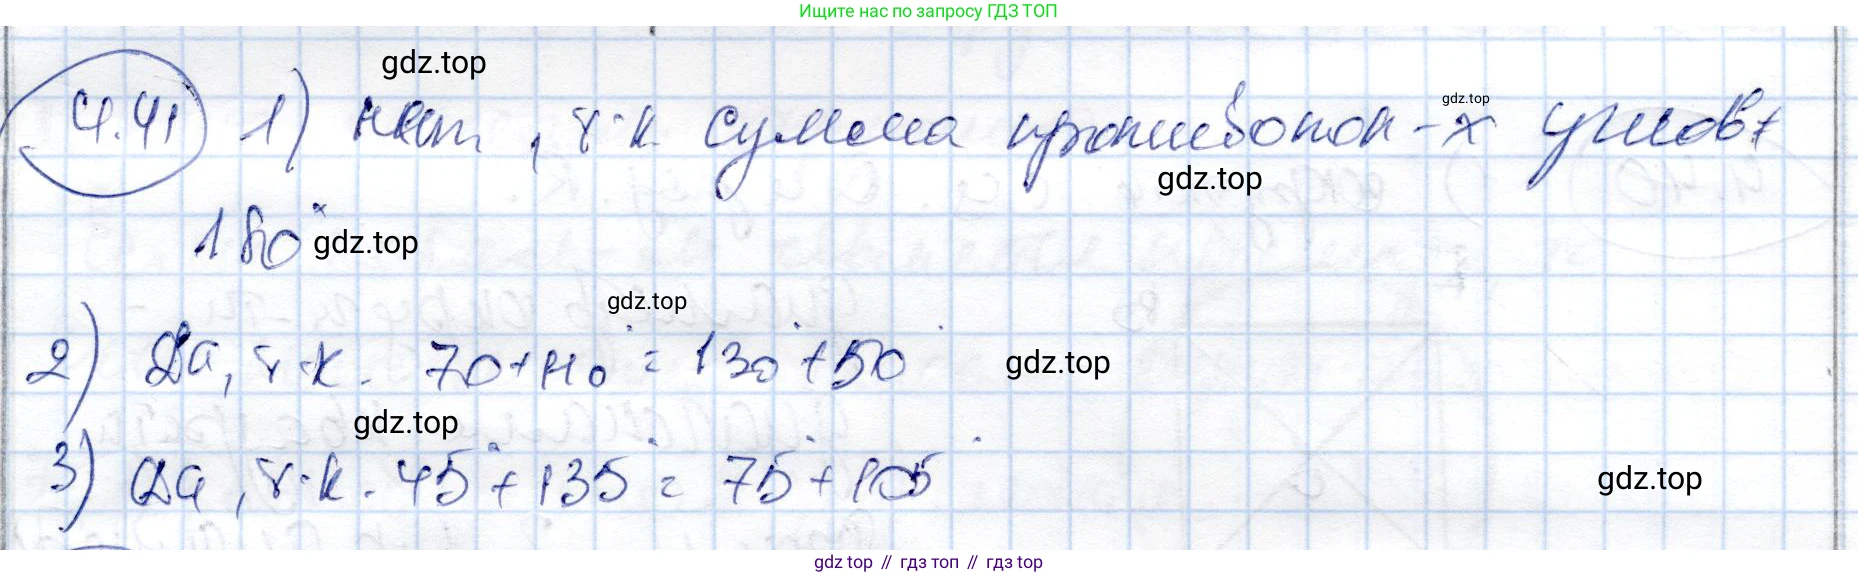 Ищите нас по запросу ГДЗ ТОП
gdz.top
4.41 1) нет, т.к сумма противопол-х углов ≠
gdz.top
gdz.top
180°
gdz.top
gdz.top
2) Да, т.к. 70+110° = 130°+50°
gdz.top
gdz.top
3) Да, т.к. 45°+135° = 75°+105°
gdz.top
gdz.top // гдз топ // гдз top